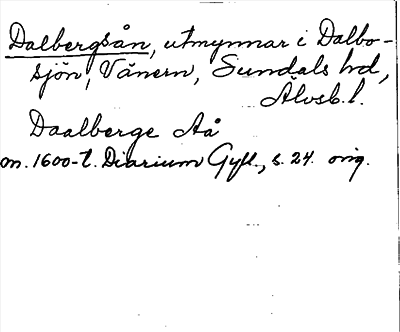 Dalbergsån, utmynnar i Dalbo-
sjön, Vänern, Sundals hd,
Älvsb. l.
Daalberge Aå
m. 1600-t. Diarium Gyll., s. 24. orig.